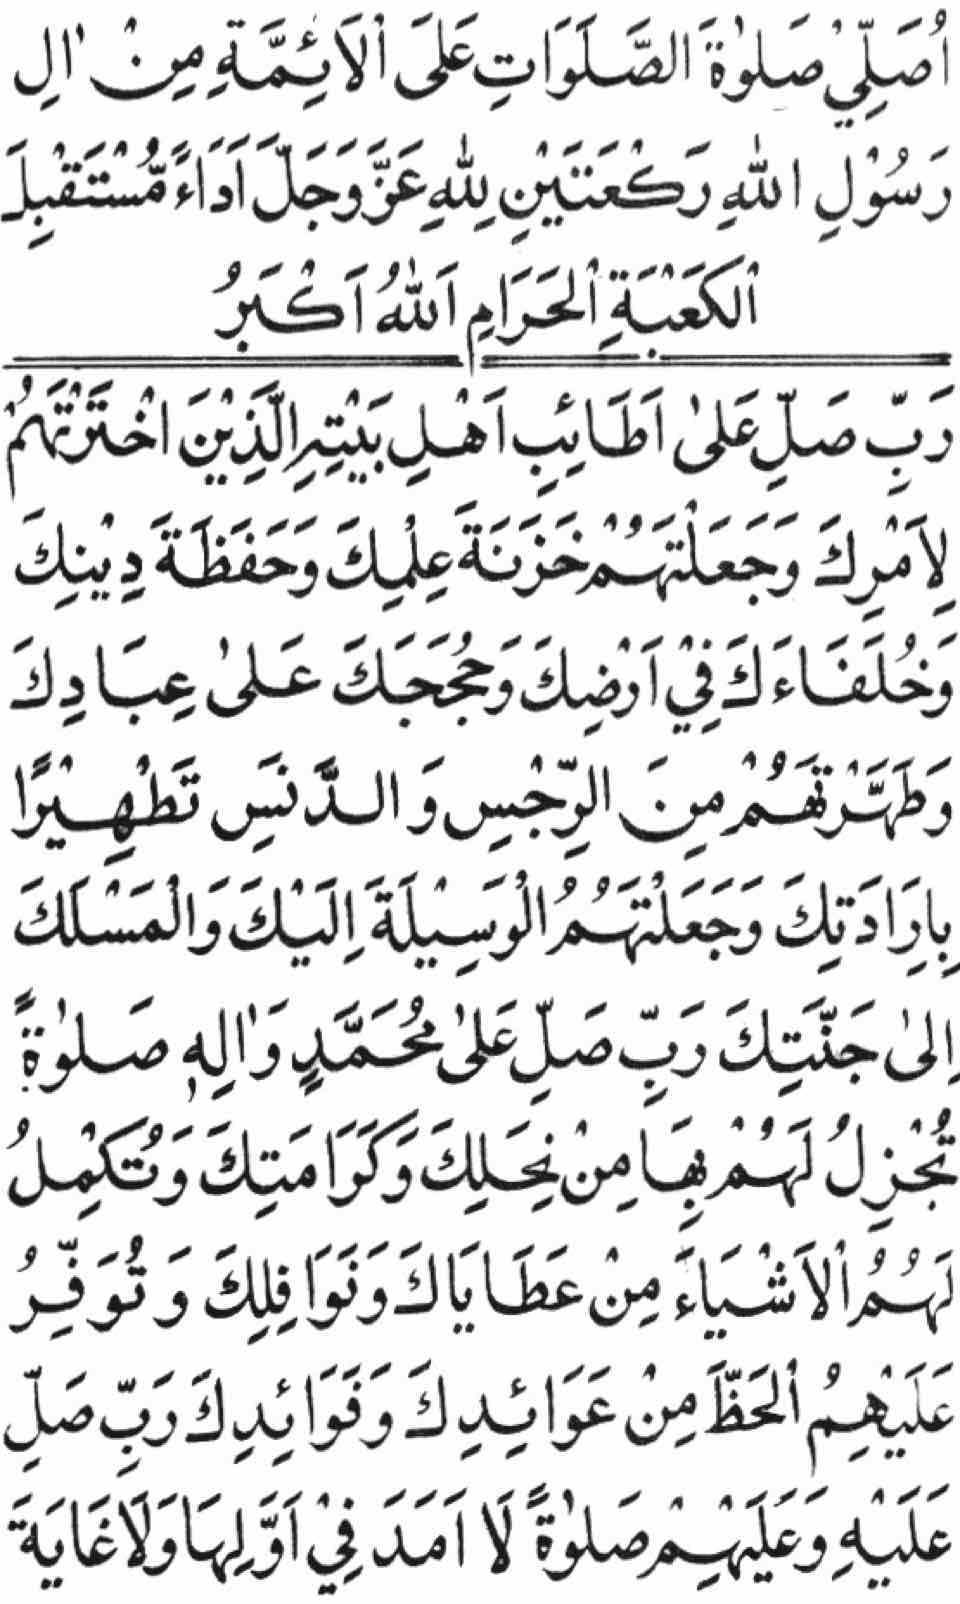 اُصَلِّيْ صَلٰوةَ الصَّلَوَاتِ عَلَى الْاَئِمَّةِ مِنْ اٰلِ
رَسُوْلِ اللّٰهِ رَكْعَتَيْنِ لِلّٰهِ عَزَّ وَجَلَّ اَدَاءً مُّسْتَقْبِلَ
الْكَعْبَةِ الْحَرَامِ اَللّٰهُ اَكْبَرُ
رَبِّ صَلِّ عَلٰى اَطَائِبِ اَهْلِ بَيْتِهِ الَّذِيْنَ اخْتَرْتَهُمْ
لِاَمْرِكَ وَجَعَلْتَهُمْ خَزَنَةَ عِلْمِكَ وَحَفَظَةَ دِيْنِكَ
وَخُلَفَاءَكَ فِيْ اَرْضِكَ وَحُجَجَكَ عَلٰى عِبَادِكَ
وَطَهَّرْتَهُمْ مِنَ الرِّجْسِ وَالدَّنَسِ تَطْهِيْرًا
بِاِرَادَتِكَ وَجَعَلْتَهُمُ الْوَسِيْلَةَ اِلَيْكَ وَالْمَسْلَكَ
اِلٰى جَنَّتِكَ رَبِّ صَلِّ عَلٰى مُحَمَّدٍ وَاٰلِهٖ صَلٰوةً
تُجْزِلُ لَهُمْ بِهَا مِنْ نِحَلِكَ وَكَرَامَتِكَ وَتُكْمِلُ
لَهُمُ الْاَشْيَاءَ مِنْ عَطَايَاكَ وَنَوَافِلِكَ وَتُوَفِّرُ
عَلَيْهِمُ الْحَظَّ مِنْ عَوَائِدِكَ وَفَوَائِدِكَ رَبِّ صَلِّ
عَلَيْهِ وَعَلَيْهِمْ صَلٰوةً لَا اَمَدَ فِيْ اَوَّلِهَا وَلَا غَايَةَ